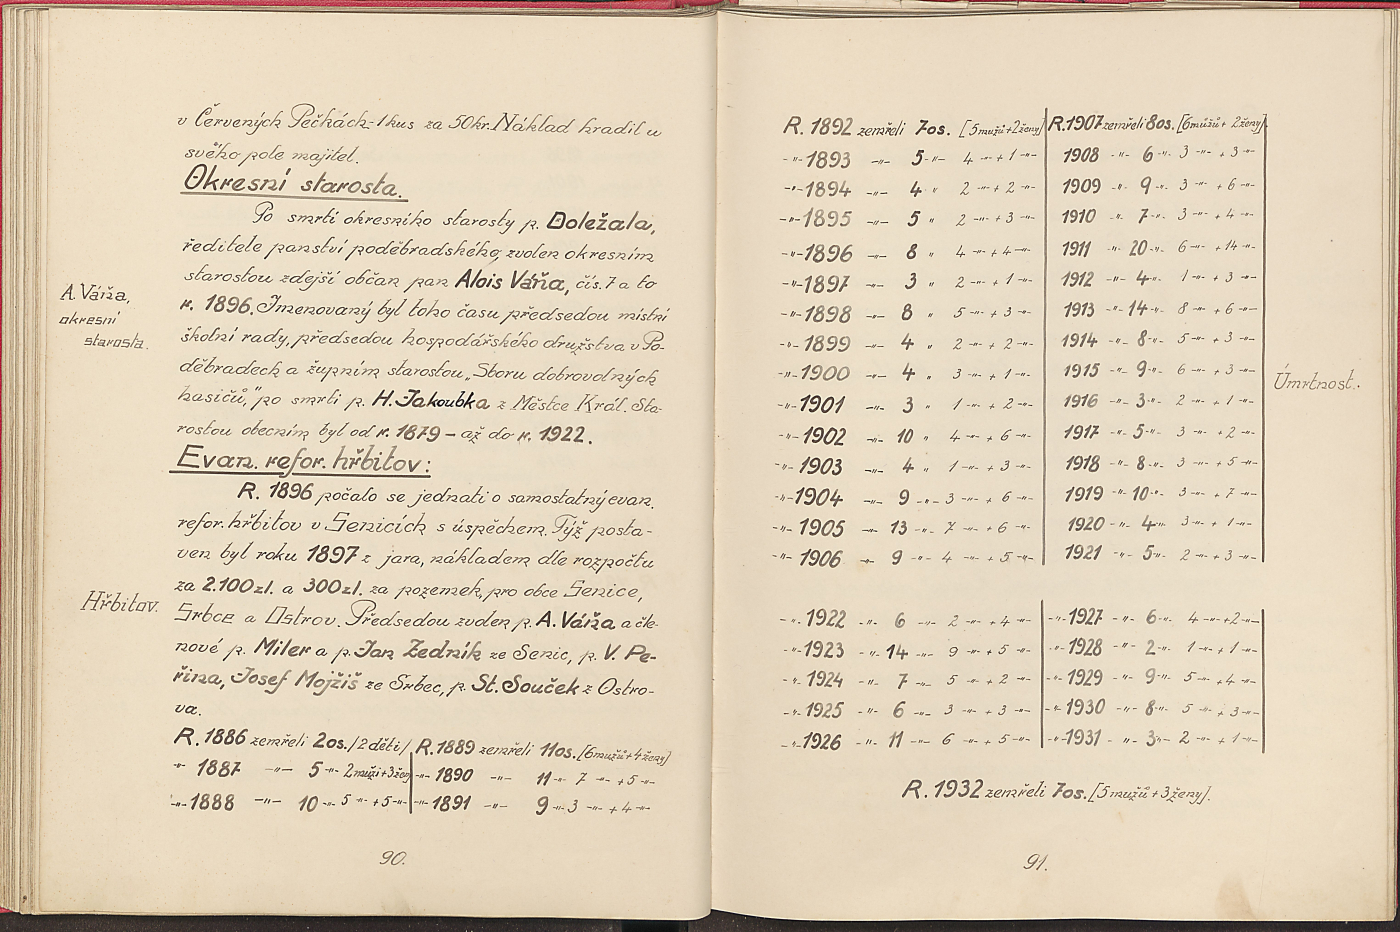 v Červených Pečkách-1 kus za 50kr. Náklad hradil u
svého pole majitel.
Okresní starosta.
Po smrti okresního starosty p. Doležala,
ředitele panství poděbradského, zvolen okresním
starostou zdejší občan pan Alois Váňa, čís. 7 a to
A. Váňa,
okresní
starosta.
r. 1896. Jmenovaný byl toho času předsedou místní
školní rady, předsedou hospodářského družstva v Po-
děbradech a župním starostou „Sboru dobrovolných
hasičů," po smrti p. H. Jakoubka z Městce Král. Sta-
rostou obecním byl od r. 1879 – až do r. 1922.
Evan. refor. hřbitov:
R. 1896 počalo se jednati o samostatný evan.
refor. hřbitov v Senicích s úspěchem. Týž posta-
ven byl roku 1897 z jara, nákladem dle rozpočtu
za 2.100 zl. a 300 zl. za pozemek, pro obce Senice,
Hřbitov.
Srbce a Ostrov. Předsedou zvolen p. A. Váňa a čle-
nové p. Miler a p. Jan Zedník ze Senic, p. V. Pe-
řina, Josef Mojžiš ze Srbec, p. St. Souček z Ostro-
va.
R. 1886 zemřeli 2os. /2 děti/ R. 1889 zemřeli 11os. [6 mužů + 4 ženy]
-"- 1887 -"- 5 -"- 2 muži + 3 ženy -"- 1890 -"- 11 -"- 7 -"- + 5 -"-
-"- 1888 -"- 10 -"- 5 -"- + 5 -"- -"- 1891 -"- 9 -"- 3 -"- + 4 -"-
90.
R. 1892 zemřeli 7os. [5 mužů + 2 ženy] R. 1907 zemřeli 8os. [6 mužů + 2 ženy]
-"- 1893 -"- 5 -"- 4 -"- + 1 -"- 1908 -"- 6 -"- 3 -"- + 3 -"-
-"- 1894 -"- 4 " 2 -"- + 2 -"- 1909 -"- 9 -"- 3 -"- + 6 -"-
-"- 1895 -"- 5 " 2 -"- + 3 -"- 1910 -"- 7 -"- 3 -"- + 4 -"-
-"- 1896 -"- 8 " 4 -"- + 4 -"- 1911 -"- 20 -"- 6 -"- + 14 -"-
-"- 1897 -"- 3 " 2 -"- + 1 -"- 1912 -"- 4 -"- 1 -"- + 3 -"-
-"- 1898 -"- 8 " 5 -"- + 3 -"- 1913 -"- 14 -"- 8 -"- + 6 -"-
-"- 1899 -"- 4 " 2 -"- + 2 -"- 1914 -"- 8 -"- 5 -"- + 3 -"-
-"- 1900 -"- 4 " 3 -"- + 1 -"- 1915 -"- 9 -"- 6 -"- + 3 -"-
Úmrtnost.
-"- 1901 -"- 3 " 1 -"- + 2 -"- 1916 -"- 3 -"- 2 -"- + 1 -"-
-"- 1902 -"- 10 " 4 -"- + 6 -"- 1917 -"- 5 -"- 3 -"- + 2 -"-
-"- 1903 -"- 4 " 1 -"- + 3 -"- 1918 -"- 8 -"- 3 -"- + 5 -"-
-"- 1904 -"- 9 -"- 3 -"- + 6 -"- 1919 -"- 10 -"- 3 -"- + 7 -"-
-"- 1905 -"- 13 -"- 7 -"- + 6 -"- 1920 -"- 4 -"- 3 -"- + 1 -"-
-"- 1906 -"- 9 -"- 4 -"- + 5 -"- 1921 -"- 5 -"- 2 -"- + 3 -"-
-"- 1922 -"- 6 -"- 2 -"- + 4 -"- -"- 1927 -"- 6 -"- 4 -"- + 2 -"-
-"- 1923 -"- 14 -"- 9 -"- + 5 -"- -"- 1928 -"- 2 -"- 1 -"- + 1 -"-
-"- 1924 -"- 7 -"- 5 -"- + 2 -"- -"- 1929 -"- 9 -"- 5 -"- + 4 -"-
-"- 1925 -"- 6 -"- 3 -"- + 3 -"- -"- 1930 -"- 8 -"- 5 -"- + 3 -"-
-"- 1926 -"- 11 -"- 6 -"- + 5 -"- -"- 1931 -"- 3 -"- 2 -"- + 1 -"-
R. 1932 zemřeli 7os. [5 mužů + 3 ženy].
91.